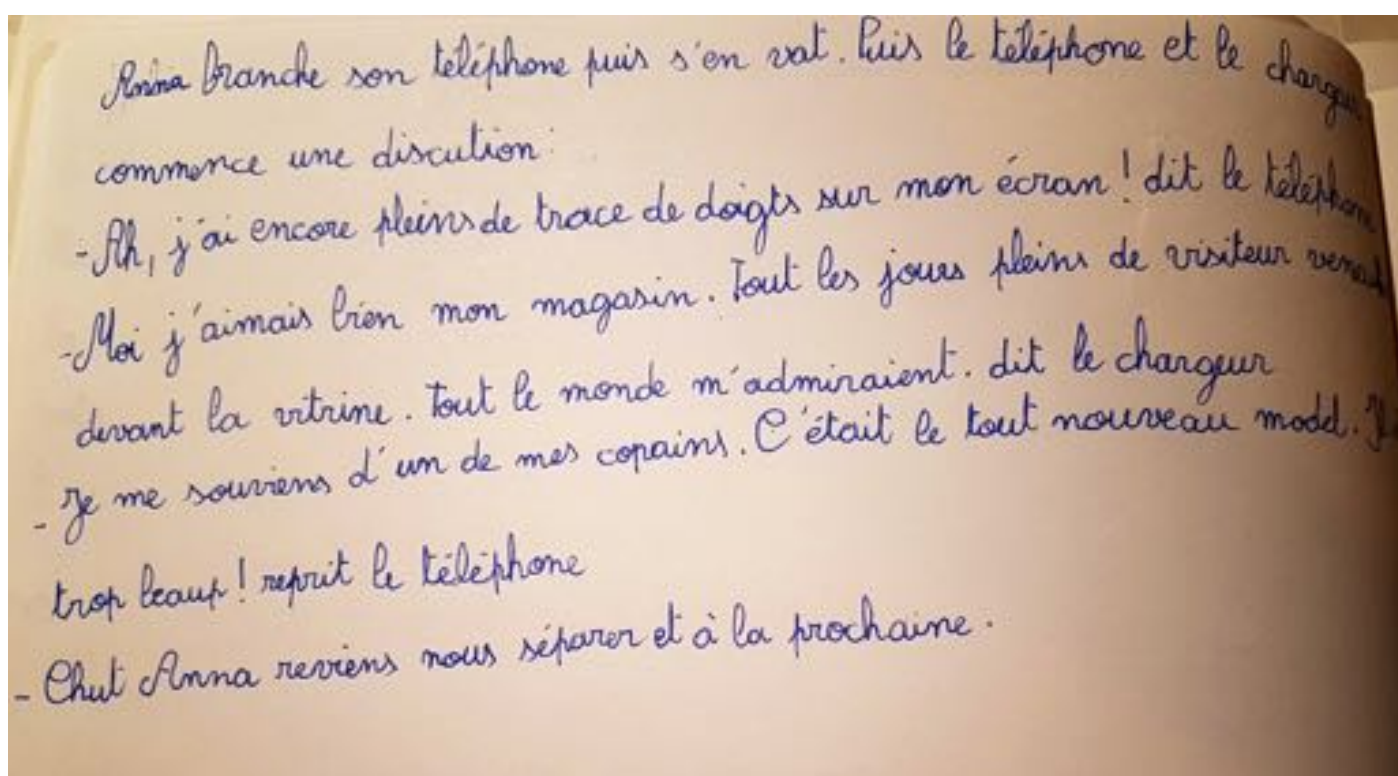 Anna branche son téléphone puis s'en vat. Puis le téléphone et le chargeur
commence une discution :
- Ah, j'ai encore pleins de trace de doigts sur mon écran ! dit le téléphone
- Moi j'aimais bien mon magasin. Tout les jours pleins de visiteur
devant la vitrine. Tout le monde m'admiraient. dit le chargeur
- Je me souviens d'un de mes copains. C'était le tout nouveau model.
trop beaup ! reprit le téléphone
- Chut Anna reviens nous séparer et à la prochaine.